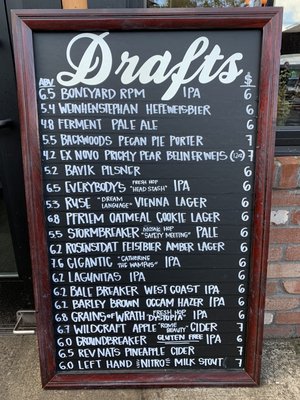 Drafts
ABV $
6.5 BONEYARD RPM IPA 6
5.4 WEIHENSTEPHAN HEFEWEISBIER 6
4.8 FERMENT PALE ALE 6
5.5 BACKWOODS PECAN PIE PORTER 7
4.2 EX NOVO PRICKLY PEAR BELINERWEIS 7
5.2 BAVIK PILSNER 6
6.5 EVERYBODY'S FRESH HOP "HEAD STASH" IPA 6
5.3 RUSE "DREAM LANGUAGE" VIENNA LAGER 6
6.8 PFRIEM OATMEAL COOKIE LAGER 6
5.5 STORMBREAKER MOSAIC HOP "SAFETY MEETING" PALE 6
6.2 ROSENSTADT FESTBIER AMBER LAGER 6
7.6 GIGANTIC "CATCHING THE WAMPUS" IPA 6
6.2 LAGUNITAS IPA 6
6.2 BALE BREAKER WEST COAST IPA 6
6.2 BARLEY BROWN OCCAM HAZER IPA 6
6.8 GRAINS OF WRATH FRESH HOP "DYSTOPIA" IPA 6
6.7 WILDCRAFT APPLE "ROME BEAUTY" CIDER 7
6.0 GROUNDBREAKER GLUTEN FREE IPA 6
6.5 REV NATS PINEAPPLE CIDER 7
6.0 LEFT HAND NITRO MILK STOUT 7